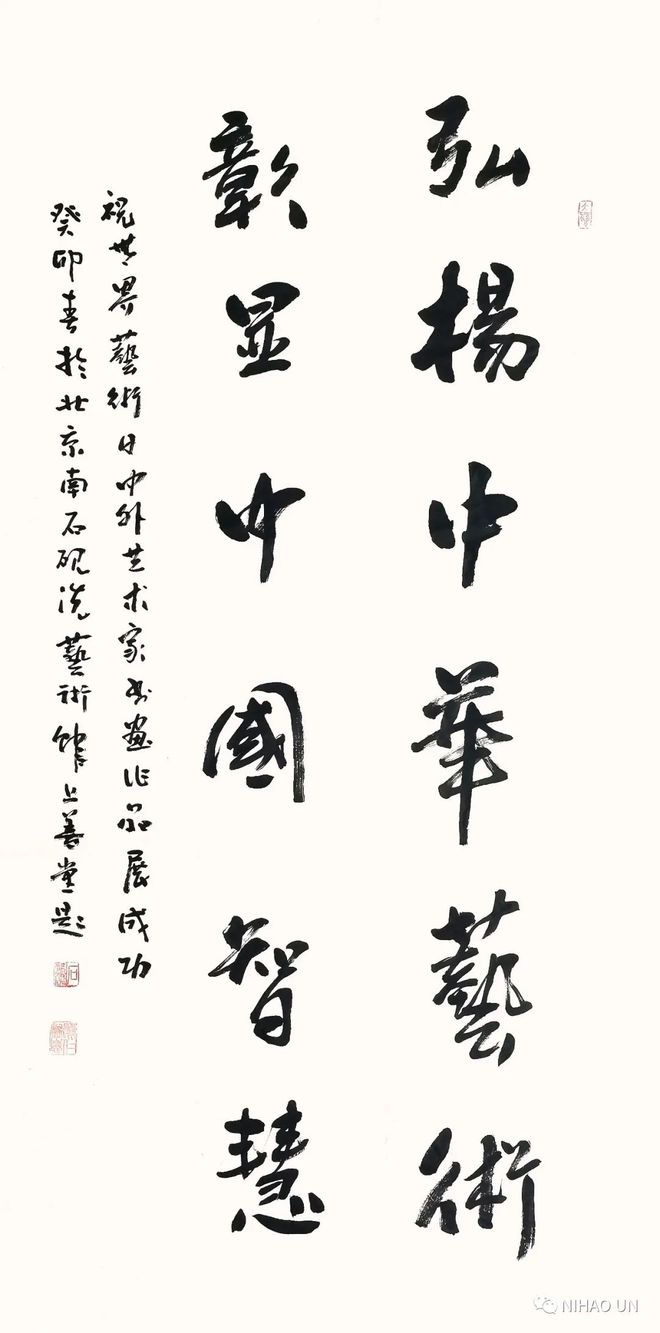 弘揚中華藝術
彰显中國智慧
祝世界藝術日中外艺术家书畫作品展成功
癸卯春於北京南石砚洗藝術館上善堂題
NIHAO UN